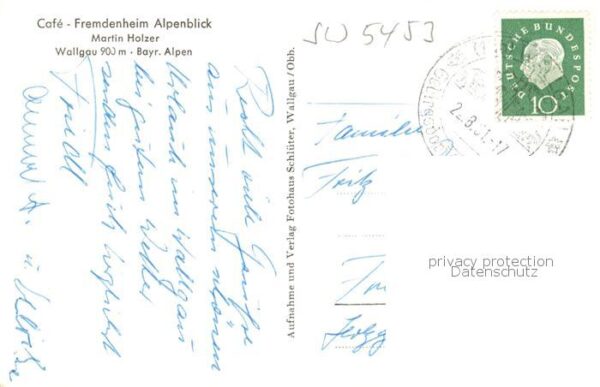 Café - Fremdenheim Alpenblick
Martin Holzer
Wallgau 900 m - Bayr. Alpen
SW 5453
DEUTSCHE BUNDESPOST
10
2.8.61.-17
Recht viele Grüsse
aus unserem schönen
Urlaub in Wallgau
bei gutem Wetter
senden Euch
Friedl
u. Ulrike
Aufnahme und Verlag Fotohaus Schlüter, Wallgau/Obb.
Familie
Fritz
privacy protection
Datenschutz